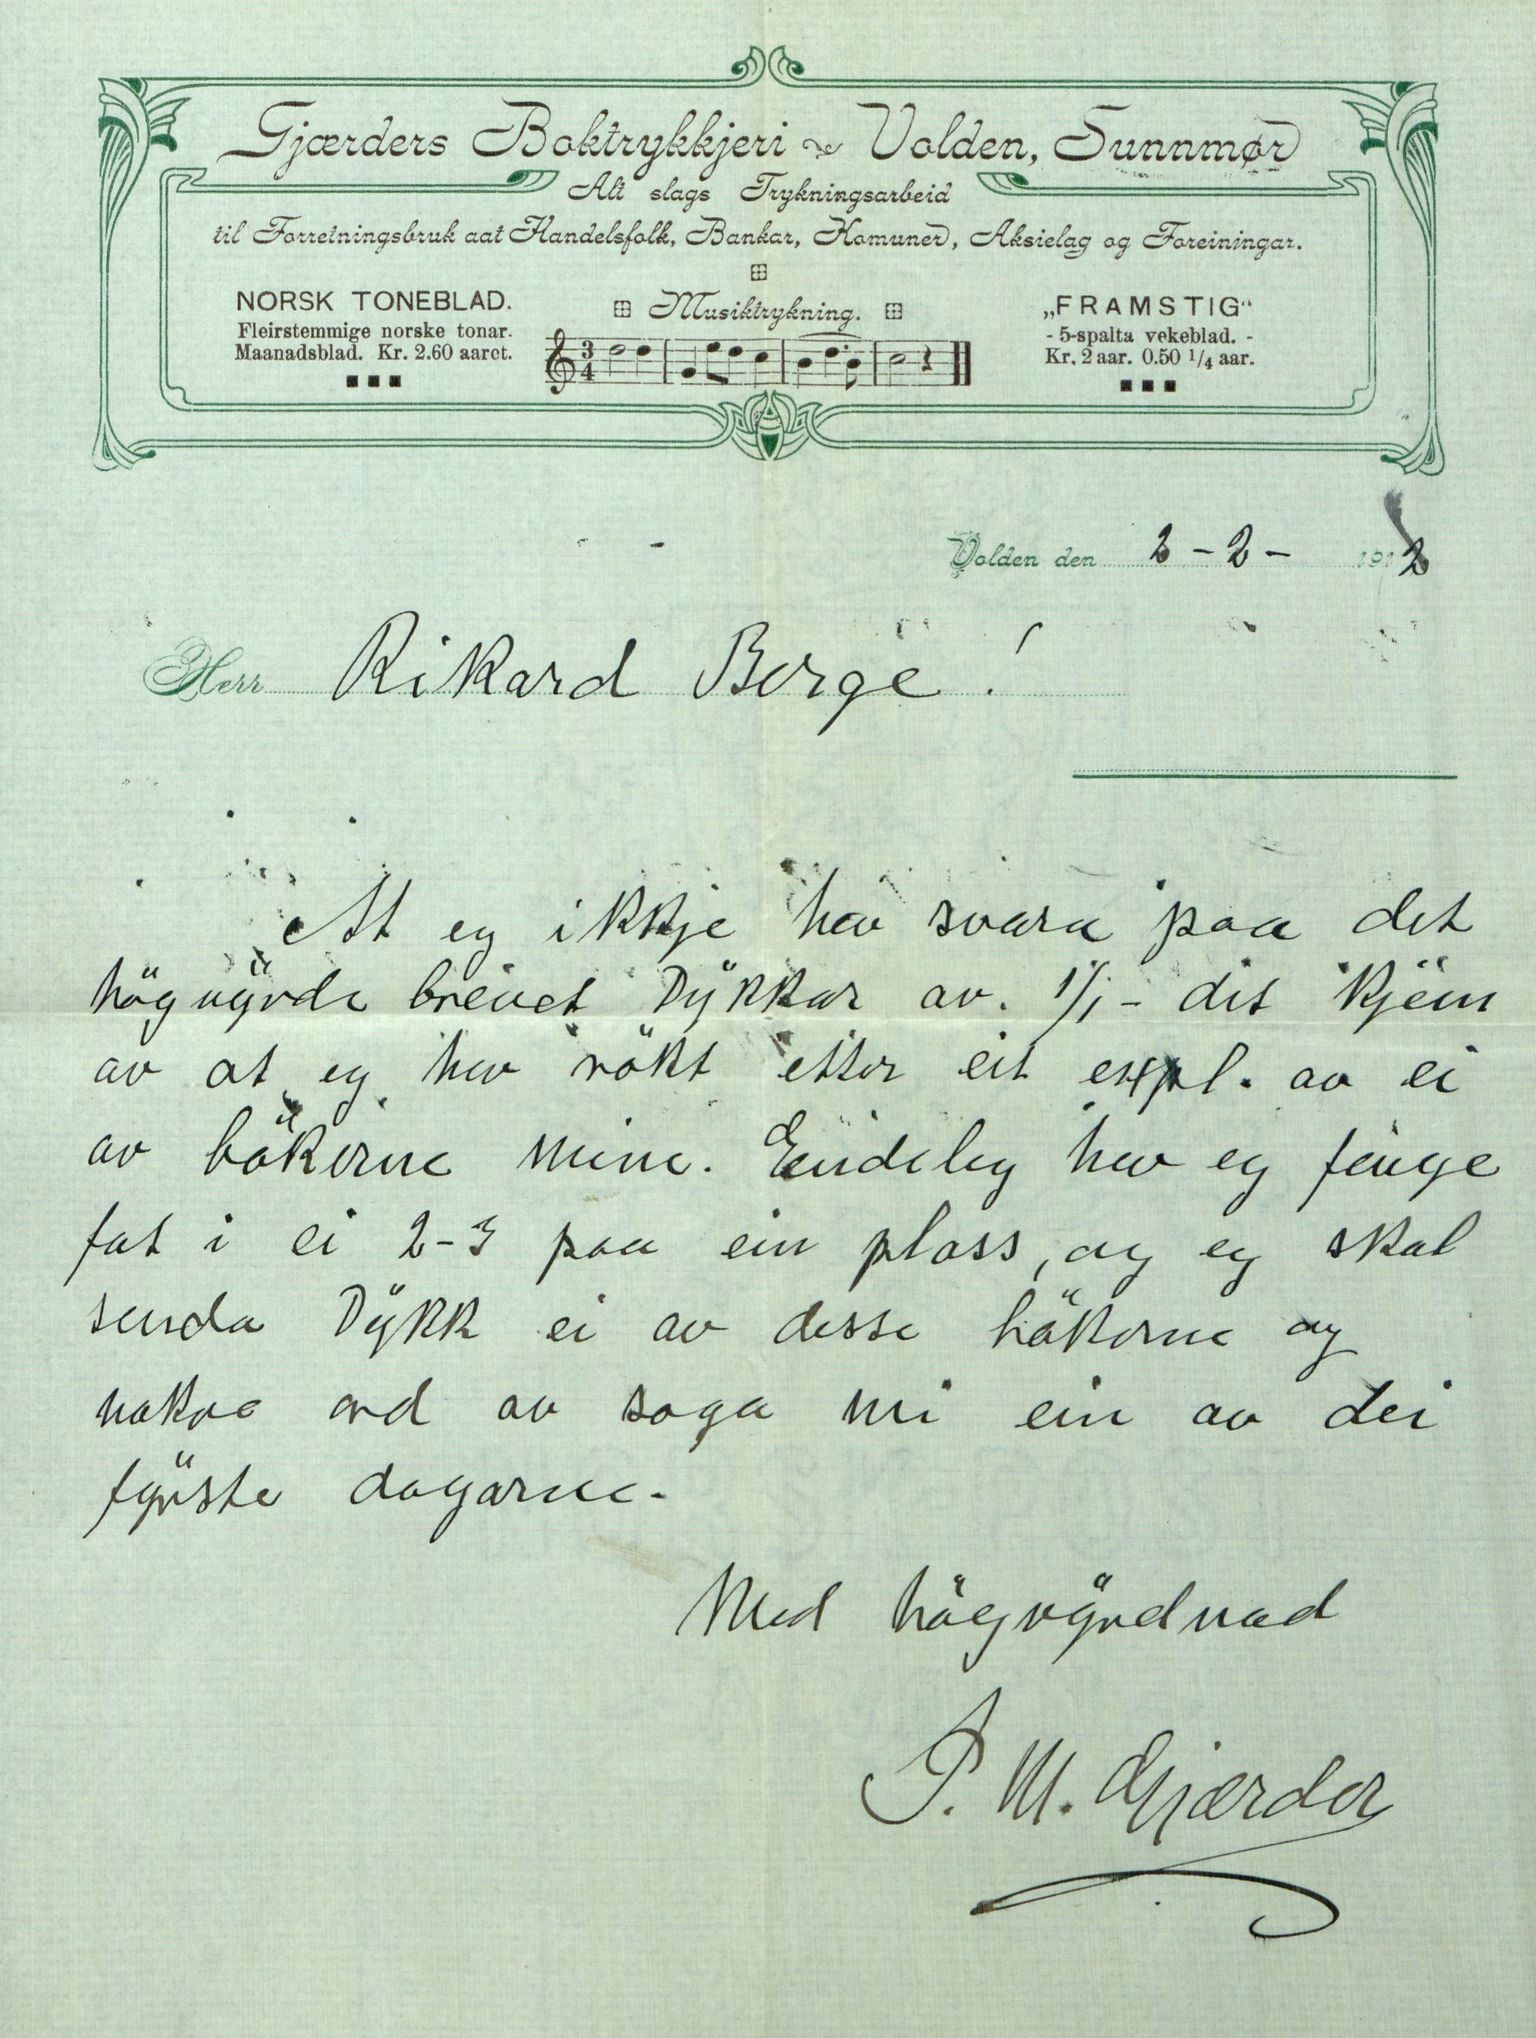 Gjærders Boktrykkjeri Volden, Sunnmør
Alt slags Trykningsarbeid
til Forretningsbruk aat Handelsfolk, Bankar, Komuner, Aksielag og Foreiningar.
NORSK TONEBLAD.
Fleirstemmige norske tonar.
Maanadsblad. Kr. 2.60 aaret.
Musiktrykning.
3
4
„FRAMSTIG“
- 5-spalta vekeblad. -
Kr. 2 aar. 0.50 1/4 aar.
Volden den 2 - 2 - 1912
Herr Rikard Berge!
At eg ikkje hev svara paa det
högvÿrde brevet Dÿkkar av. 1/1 - det kjem
av at eg hev rökt etter eit expl. av ei
av bökerne mine. Endeleg hev eg fenge
fat i ei 2-3 paa ein plass, og eg skal
senda Dÿkk ei av desse bökerne og
nokre ord av soga mi ein av dei
fÿrste dagarne.
Med högvÿrdnad
P. M. Gjærder